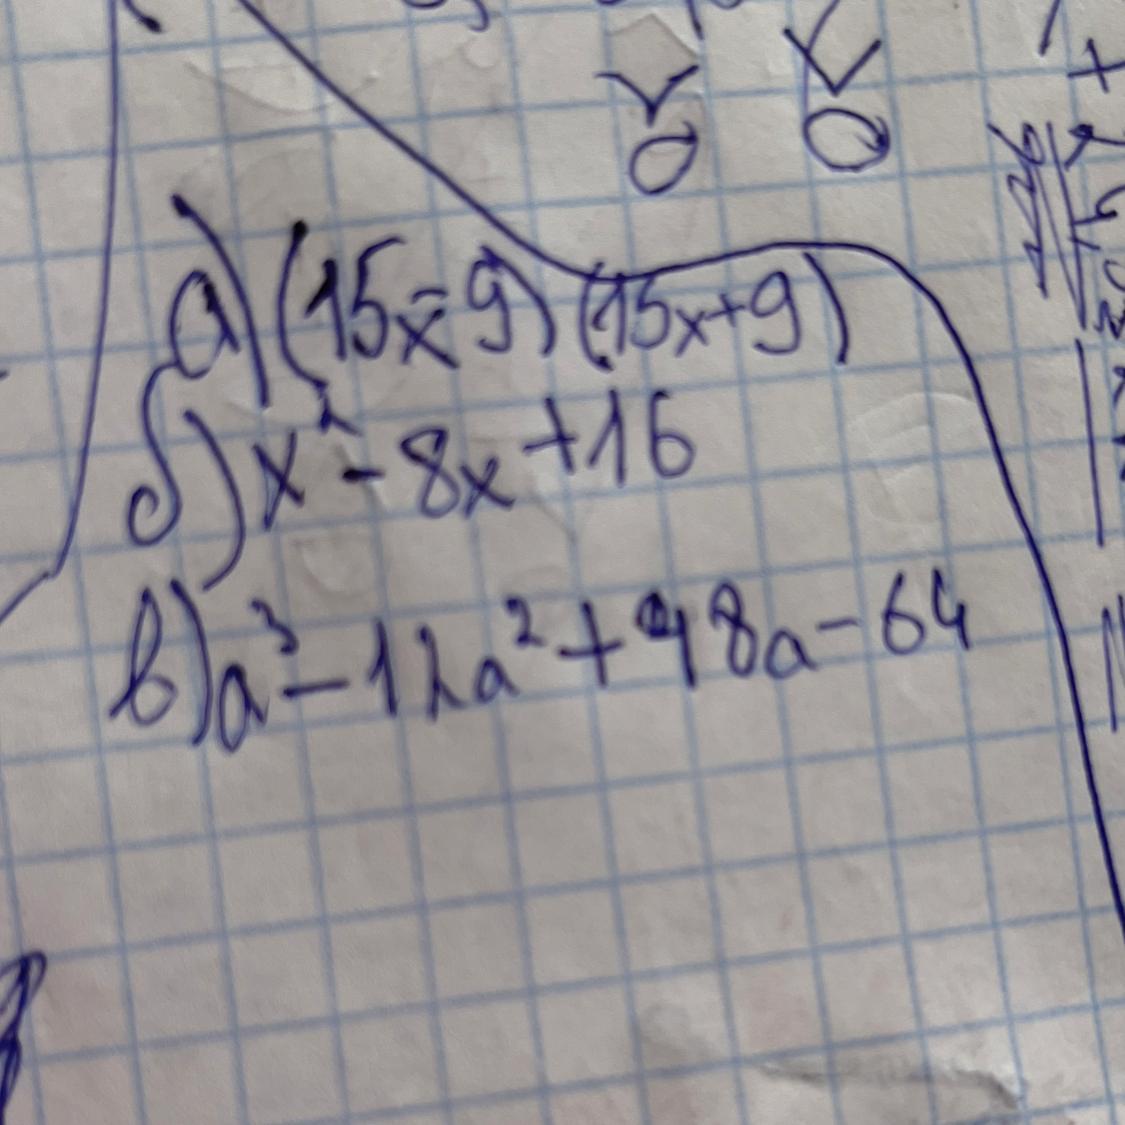 а) (15x-9) (15x+9)
б) x² - 8x + 16
в) a³ - 12a² + 48a - 64